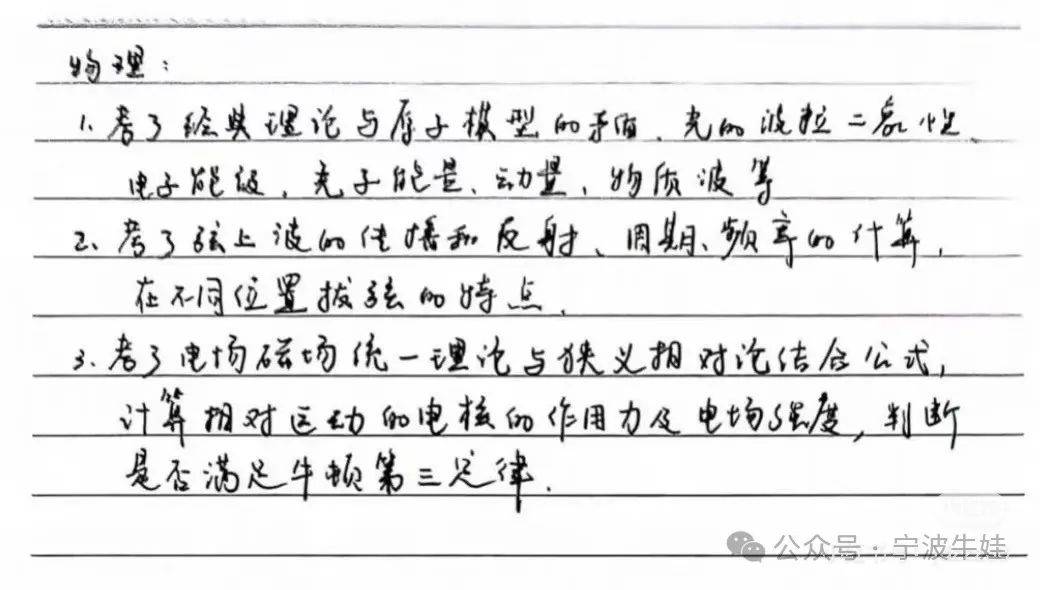 物理:
1. 考了经典理论与原子模型的矛盾、光的波粒二象性、
电子能级、光子能量、动量、物质波等
2、考了弦上波的传播和反射、周期、频率的计算,
在不同位置拨弦的特点、
3. 考了电场磁场统一理论与狭义相对论结合公式,
计算相对运动的电核的作用力及电场强度, 判断
是否满足牛顿第三定律.
公众号·宁波牛娃